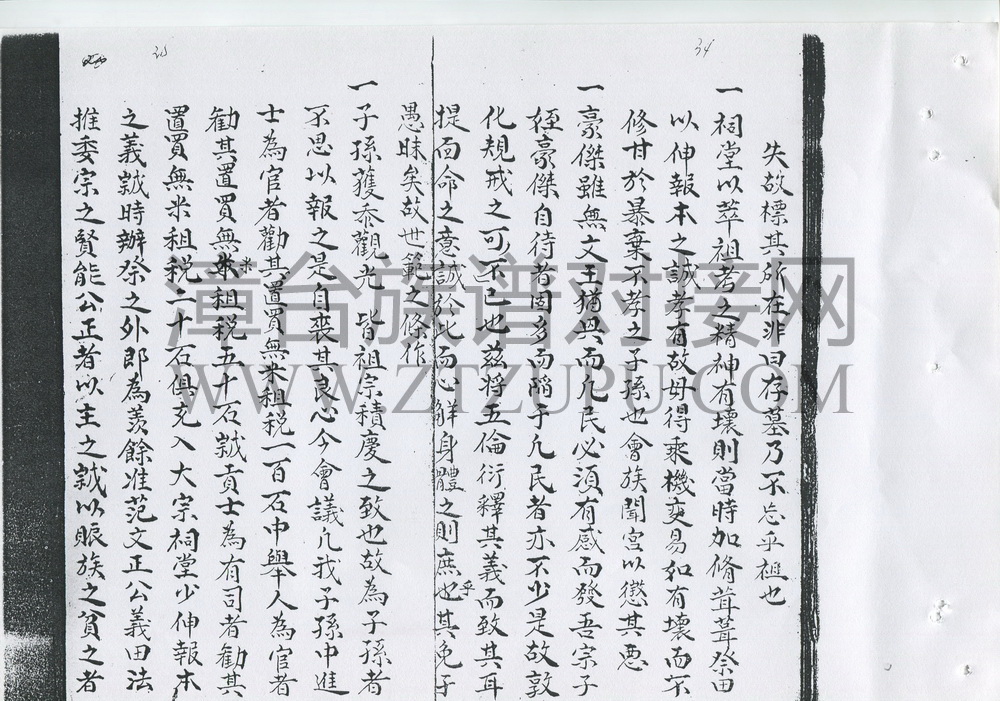 34
失故標其所在非曰存墓乃不忘乎祖也
一祠堂以萃祖考之精神有壞則當時加脩葺葺祭田
以伸報本之誠孝有故毋得乘機變易如有壞而不
修甘於暴棄不孝之子孫也會族聞官以懲其惡
一豪傑雖無文王猶興而凡民必須有感而發吾宗子
姪豪傑自待者固多而陷于凡民者亦不少是故敦
化規戒之可不已也茲將五倫衍釋其義而致其耳
提面命之意誠於此而心解身體之則庶乎也其免于
愚昧矣故世範之條作
一子孫獲忝觀光皆祖宗積慶之致也故為子孫者
不思以報之是自喪其良心今會議凡我子孫中進
士為官者勸其置買無米租税一百石中舉人為官者
勸其置買無米租税五十石誠貢士為有司者勸其
置買無米租税二十石俱充入大宗祠堂少伸報本
之義誠時辦祭之外即為羡餘准范文正公義田法
推委宗之賢能公正者以主之誠以賑族之貧之者
漳台族谱对接网
WWW.ZTZUPU.COM